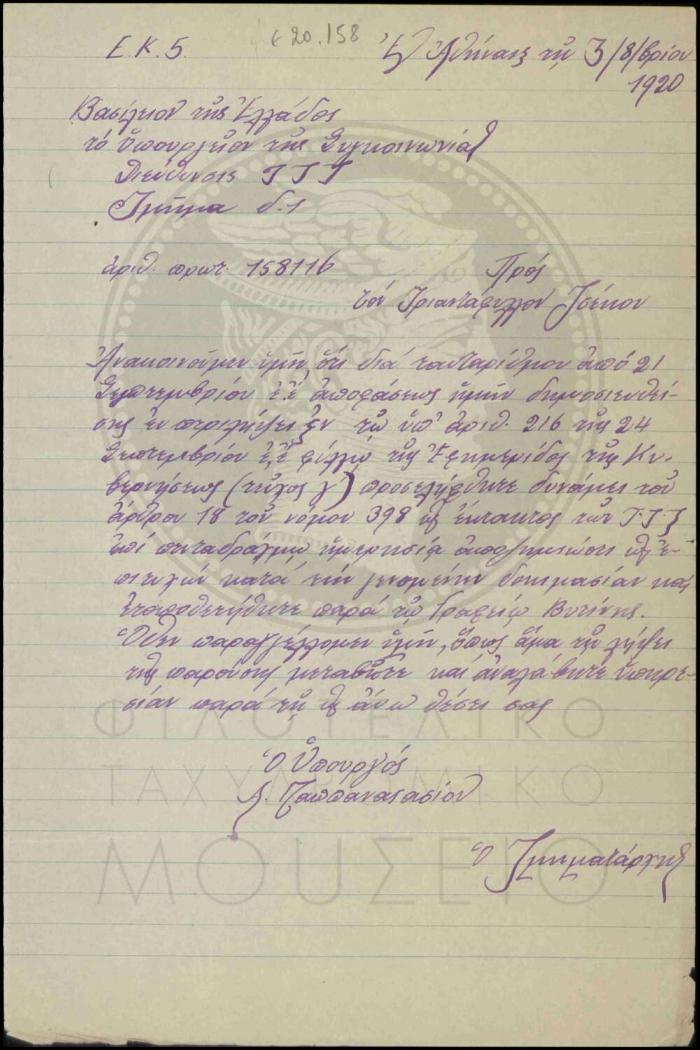 Ε 20.158
Ε.Κ. 5. Ἐν Ἀθήναις τῇ 3/8/βρίου
1920
Βασίλειον τῆς Ἑλλάδος
τὸ ὑπουργεῖον τῆς Συγκοινωνίας
Διεύθυνσις Τ Τ Τ
Τμῆμα δ.1
ἀριθ. πρωτ. 158116 Πρός
τὸν Τριαντάφυλλον Τσέκον
Ἀνακοινοῦμεν ὑμῖν, ὅτι διὰ ταυταρίθμου ἀπὸ 21
Σεπτεμβρίου ἐ.ἔ ἀποφάσεως ἡμῶν δημοσιευθεί-
σης ἐν περιλήψει ἐν τῷ ὑπ' ἀριθ. 216 τῆς 24
Σεπτεμβρίου ἐ.ἔ φύλλῳ τῆς Ἐφημερίδος τῆς Κυ-
βερνήσεως (τεῦχος γ') προσελήφθητε δυνάμει τοῦ
ἄρθρου 18 τοῦ νόμου 398 ὡς ἔκτακτος τῶν Τ.Τ.Τ
ἐπὶ πενταδράχμῳ ἡμερησίᾳ ἀποζημιώσει ὡς ἐ-
πιτυχὼν κατὰ τὴν γενομένην δοκιμασίαν καὶ
ἐτοποθετήθητε παρὰ τῷ Γραφείῳ Βυτίνης.
Ὅθεν παραγγέλλομεν ὑμῖν, ὅπως ἅμα τῇ λήψει
τῆς παρούσης μεταβῆτε καὶ ἀναλάβητε ὑπηρε-
σίαν παρὰ τῇ ὡς ἄνω θέσει σας
Ὁ Ὑπουργός
Α. Παππαναστασίου
Ὁ Τμηματάρχης
ΦΙΛΟΤΕΛΙΚΟ
ΤΑΧΥΔΡΟΜΙΚΟ
ΜΟΥΣΕΙΟ